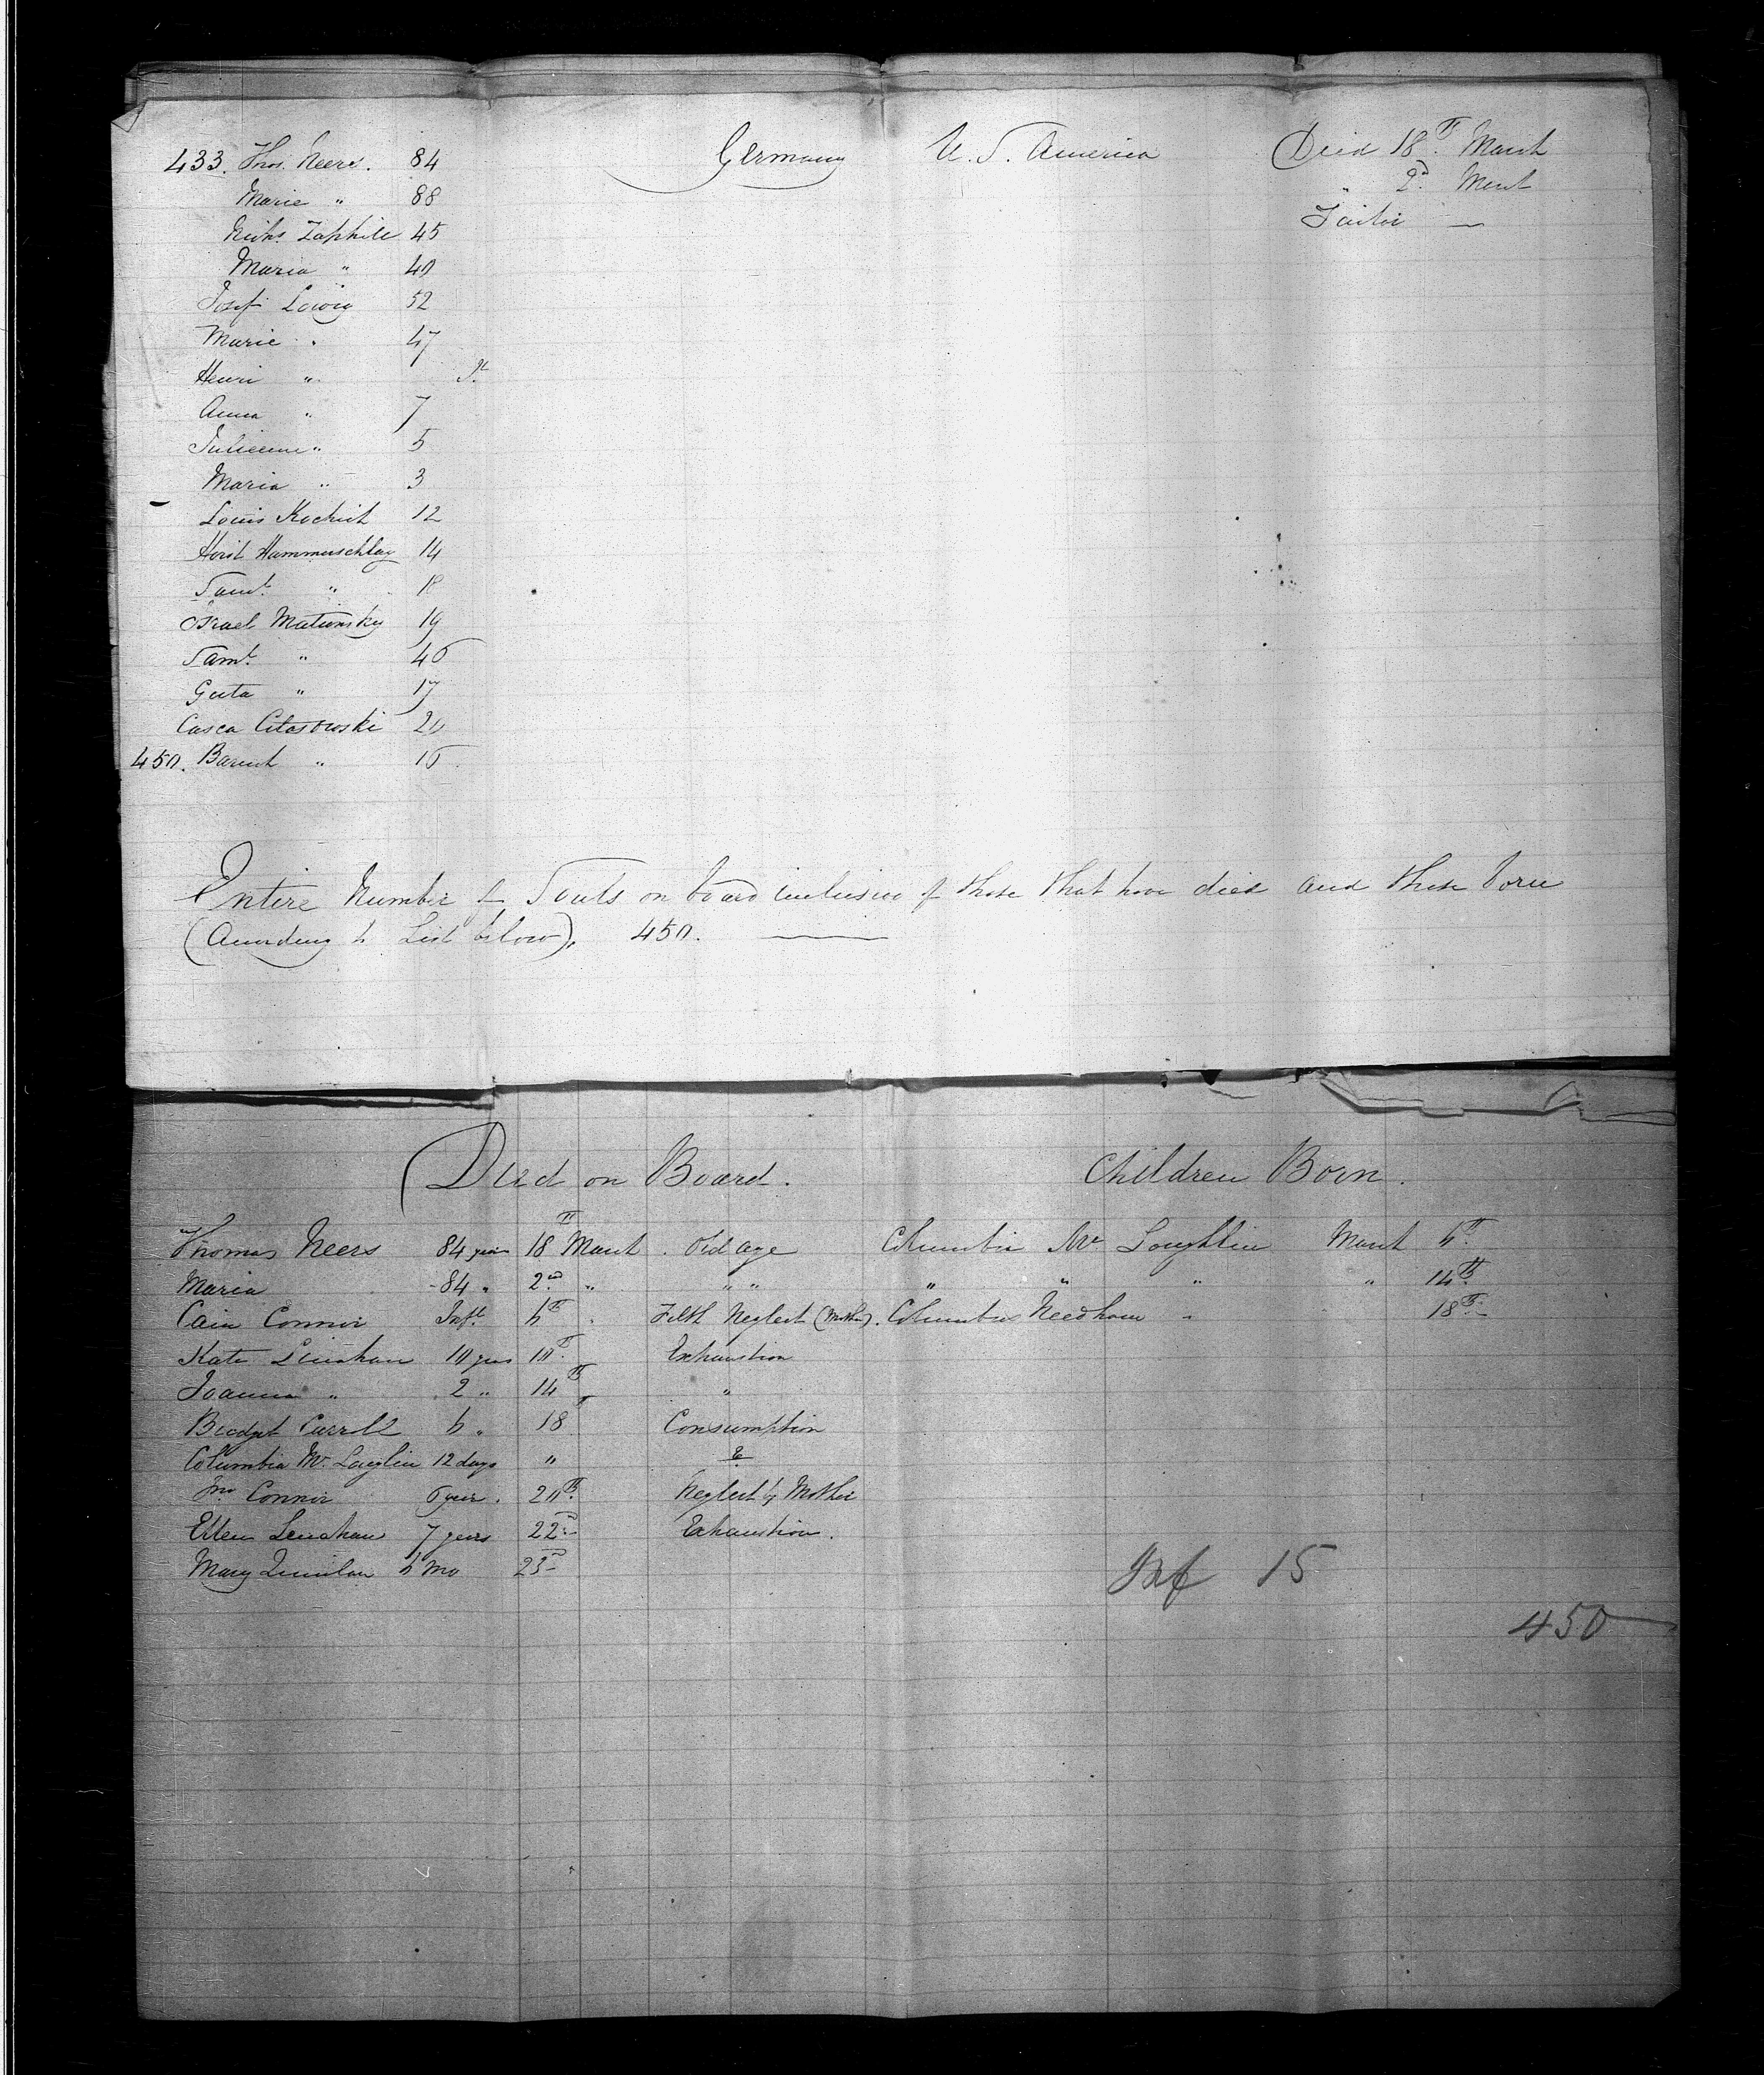 433. Thos. Neers. 84 Germany U. S. America Died 18th March
Marie " 88 " 2d March
Nichs. Zaphile 45 Tailor —
Maria " 40
Josef Lowig 52
Marie " 47
Henri "
Anna " 7
Julienne " 5
Maria " 3
Louis 12
Horit Hammerschlag 14
Saml. " 18
Israel Mationsky 19
Saml. " 46
Guta " 17
Casca 20
450. Baruch " 16
Entire Number of Souls on board inclusive of those that have died and those born
(According to List below), 450. —
Died on Board. Children Born.
Thomas Neers 84 years 18th March. Old age Columbia Mc Loughlin March 6th
Maria - 84 " 2nd " " " " " " " 14th
Cain Connor Inft. 6th " Filth Neglect (Mother). Columbus Needham " 18th
Kate Lenahan 10 years 10th. Exhaustion
Joanna " 2 " 14th "
Bridget Carroll 6 " 18 Consumption
Columbia Mc Laglin 12 days "
Jno Connor 6 years. 20th. Neglect by Mother
Ellen Lenahan 7 years 22d Exhaustion.
Mary Quinlan 6 mo 23d
Inf 15
450